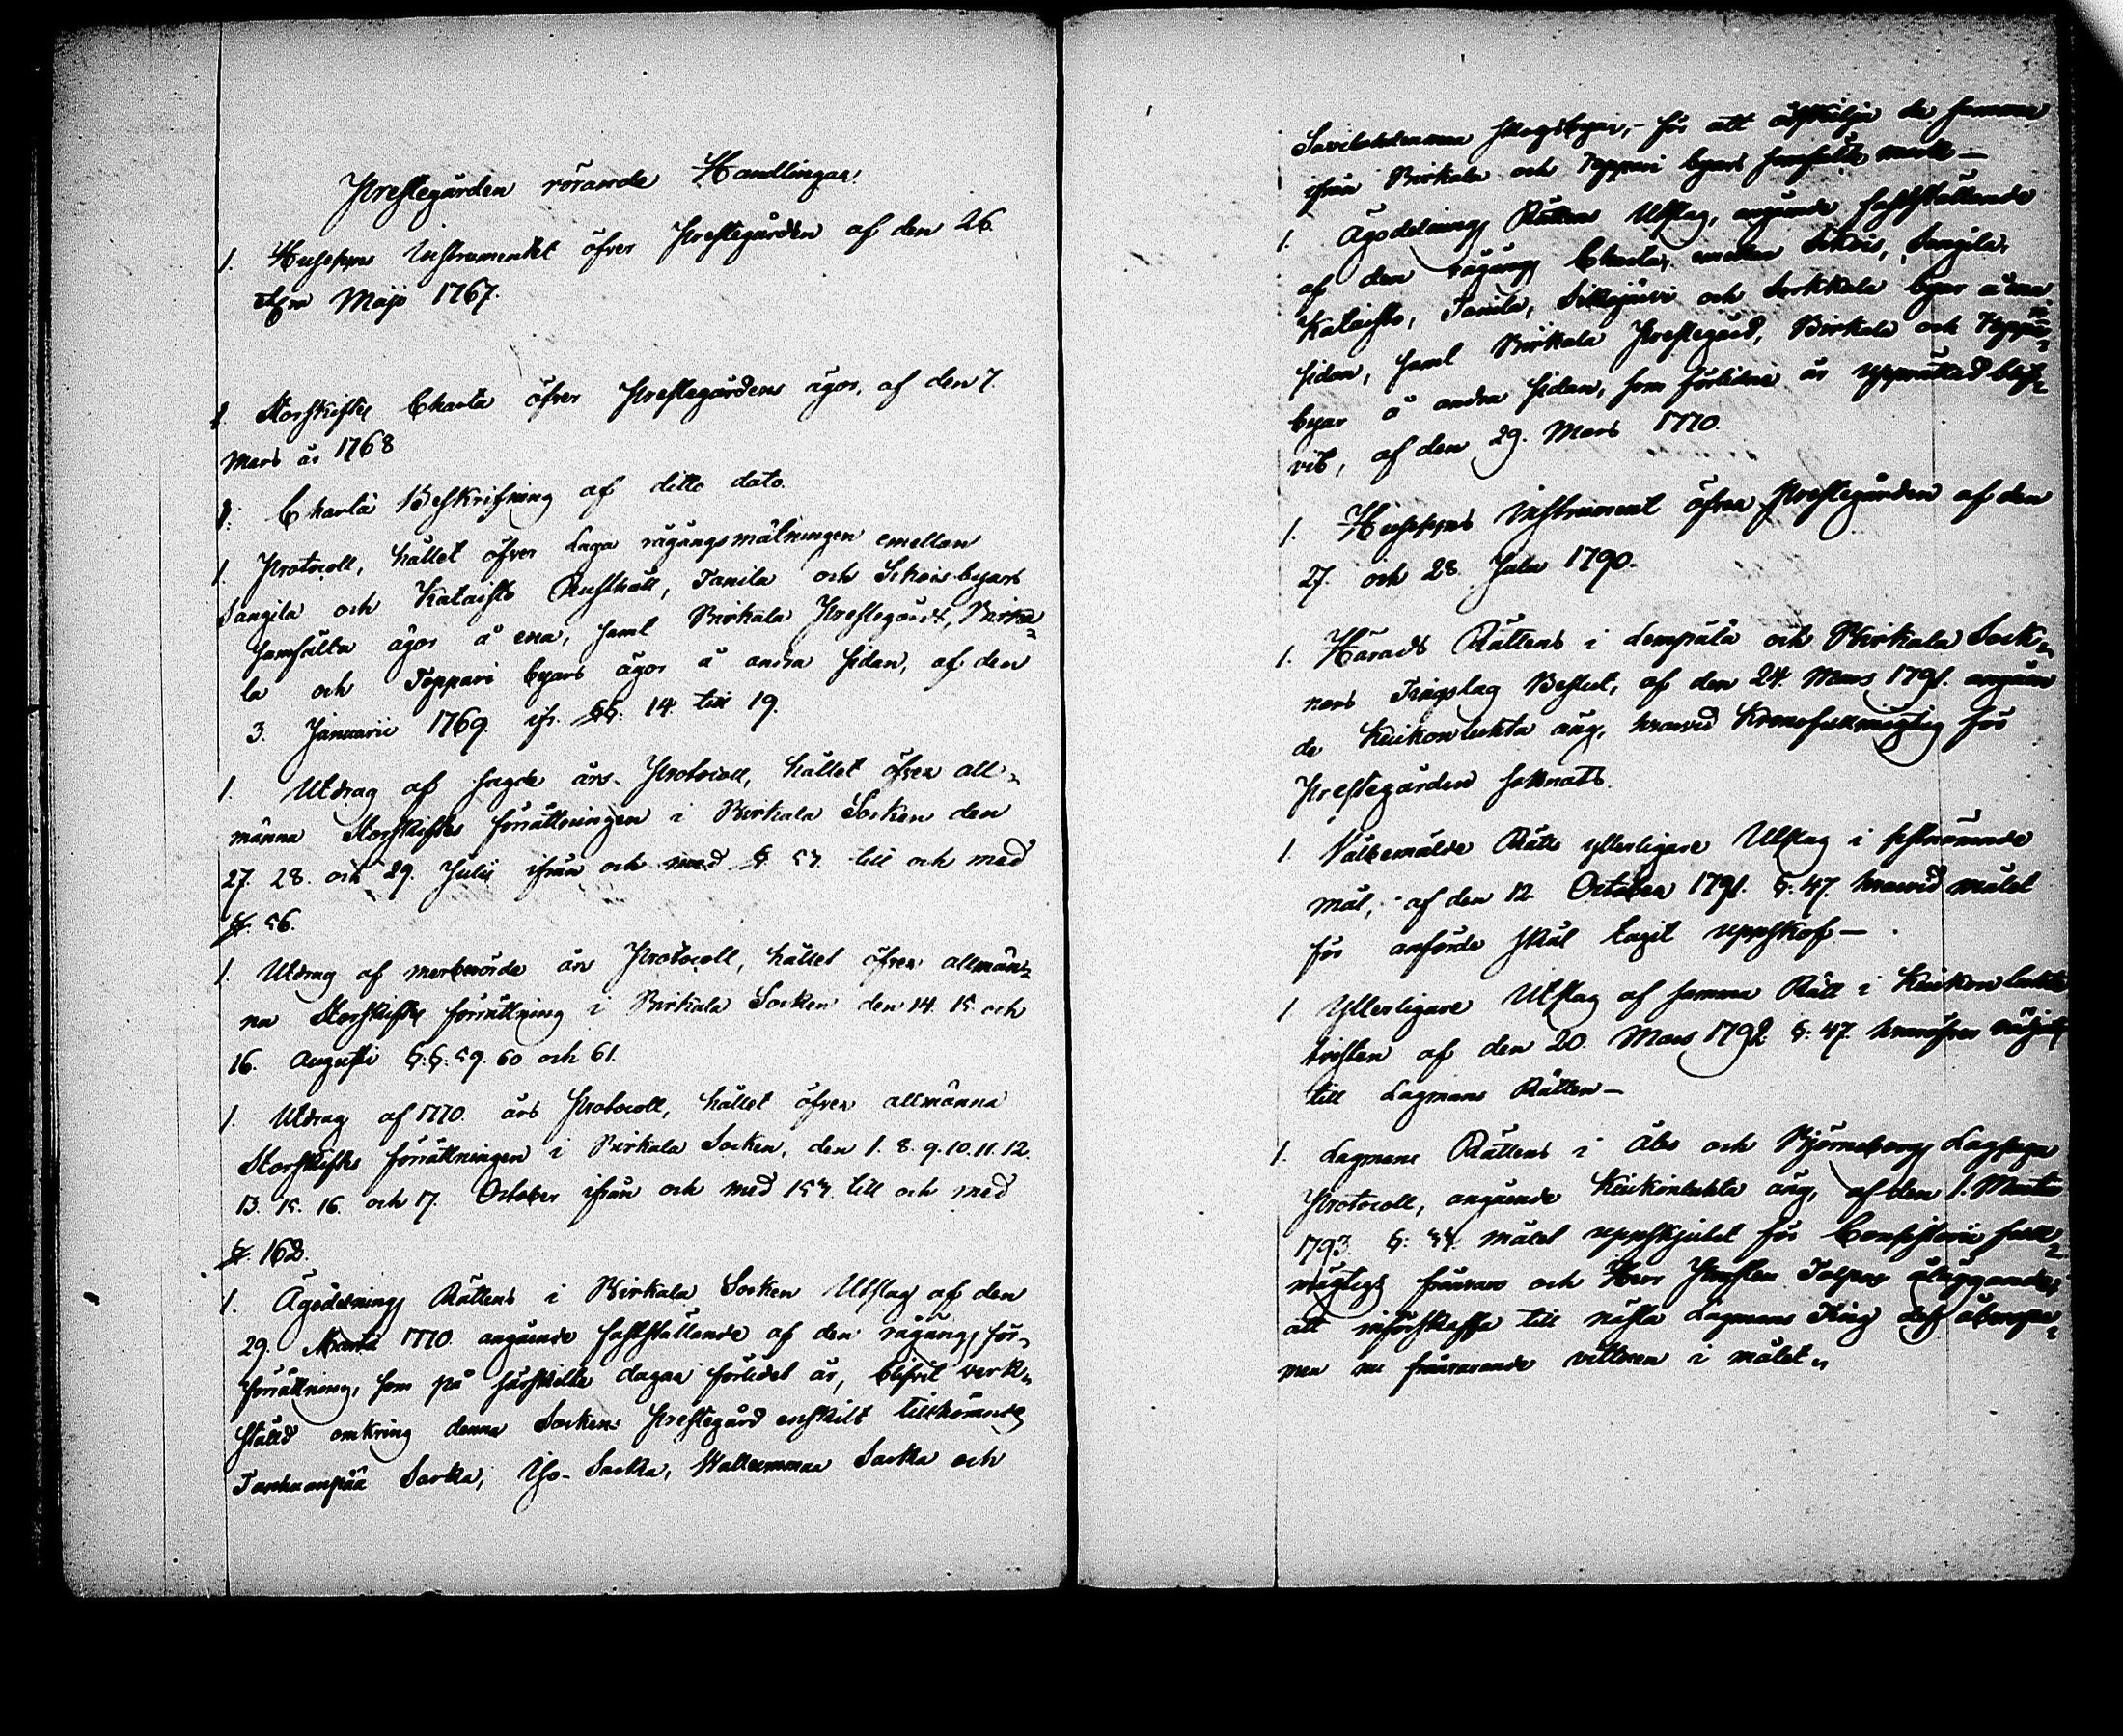 Prestegården rörande Handlingar.
1. Husesyns Instrumentet öfver Prestegården af den 26.
Maji 1767.
1. Storskiftes Charta öfver Prestegårdens ägor, af den 7.
Mars år 1768
1. Charta Beskrifning af ditto dato.
1. Protocoll, hållet öfver Laga rågångsmätningen emellan
Sangila och Kataisto Rusthåll, Tanila och Sikois byars
samfälta ägor å ena, samt Birkala Prestegård, Birka=
la och Toppari byars ägor å andra sidan, af den
3. Januarii 1769. ifr. §§. 14. till 19.
1. Utdrag af sagde års Protocoll, hållet öfver all=
männa Storskiftes förrättningen i Birkala Socken den
27. 28. och 29. Julii ifrån och med § 54. till och med
§. 56.
1. Utdrag af merberörde års Protocoll, hållet öfver allmän=
na Storskiftes förrättning i Birkala Socken den 14. 15. och
16. Augusti §.§. 59. 60 och 61.
1. Utdrag af 1770. års Protocoll, hållet öfver allmänna
Storskiftes förrättningen i Birkala Socken, den 1. 8. 9. 10. 11. 12.
13. 15. 16. och 17. October ifrån och med 154. till och med
§. 162.
1. Ägodelnings Rättens i Birkala Socken Utslag af den
29. Martii 1770. angående fastställande af den rågångs för=
förrättning, som på särskilte dagar förlidet år, blifvit verk=
ställd omkring denna Sockens Prestegård enskilt tillhörande
Tanhuanpää Sarka, Iso-Sarka, Wallimmaa Sarka och
skogsbyar, för att åtskilja de samma
ifrån Birkala och Toppari byars samfälte mark—
1. Ägodelnings Rättens Utslag, angående fastställande
af den rågångs Charta, emellan Sikois, Sangila,
Kataisto, Tanila, Sikojärvi och Sorkkala byar å ena
sidan, samt Birkala Prestegård, Birkala och Toppari
byar å andra sidan, som förlidne år upprättad blif=
vit, af den 29. Mars 1770.
1. Husesyns Instrument öfver Prestegården af den
27. och 28. Jula 1790.
1. Härads Rättens i Lempälä och Birkala Sock=
nars Tingslag Beslut, af den 24. Mars 1791. angåen
de Kuikonluhta äng, hvarvid Kronofullmägtig för
Prestegården saknats.
1. Välbemälde Rätts ytterligare Utslag i sistnämnde
mål, af den 12. October 1791. §. 47. hvarvid målet
för anförde skäl tagit uppskof—
1 Ytterligare Utslag af samma Rätt i Kuikonluhta
tvisten af den 20. Mars 1792 §. 47. hvaröfver vädjats
till Lagmans Rätten—
1. Lagmans Rättens i Åbo och Björneborgs Lagsaga
Protocoll, angående Kuikonluhta äng, af den 1. Martii
1793. §: 34. målet uppskjutet för Consistorii full=
mägtigs frånvaro och Herr Prosten åläggandes
att införskaffa till nästa Lagmans Ting dess åberopa=
men nu frånvarande vittnen i målet„